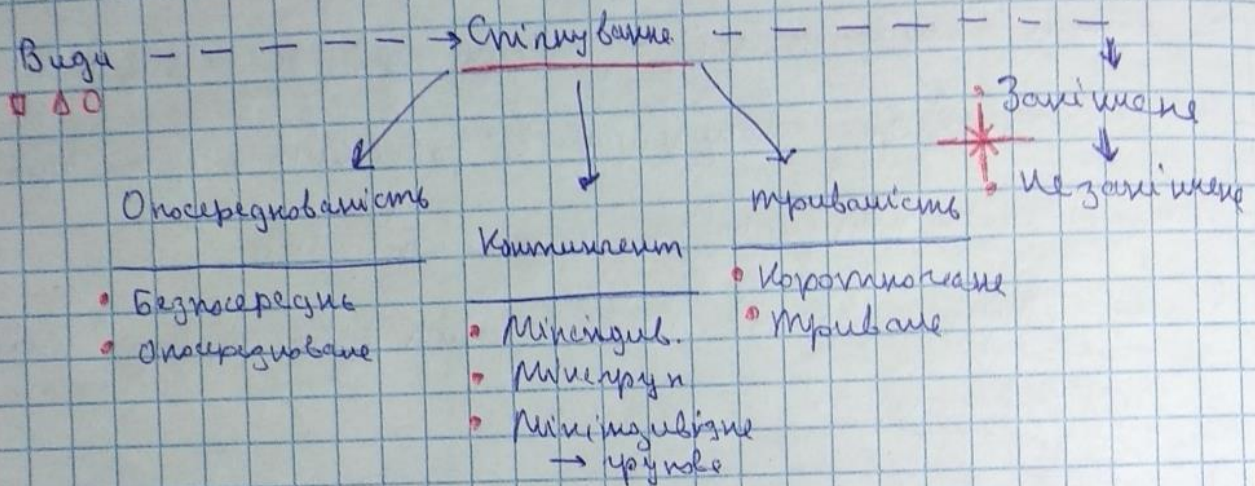 Види → Спілкування
Закінчене
Незакінчене
Опосередкованість
Безпосереднь
Опосередковане
Контингент
Міжіндив.
Міжгруп
Міжіндивідне
→ групове
тривалість
Короткочасне
тривале